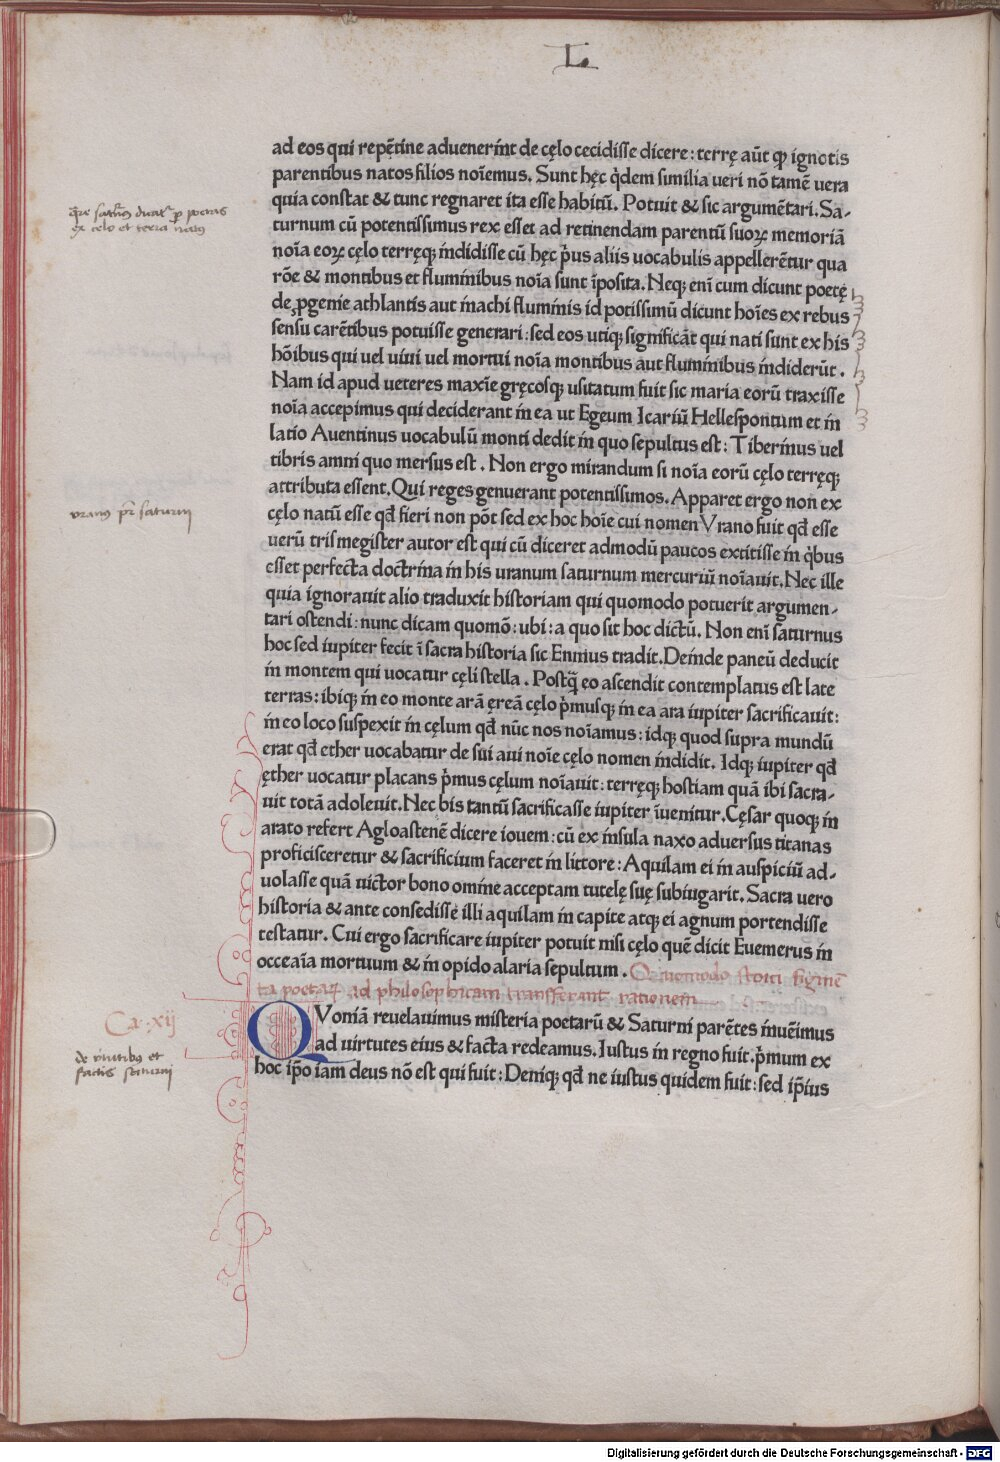 L.
ad eos qui repẽtine aduenerint de cęlo cecidisse dicere: terrę aũt qꝫ ignotis
parentibus natos filios noĩemus. Sunt hęc q̇dem similia ueri nõ tamẽ uera
quia constat & tunc regnaret ita esse habitũ. Potuit & sic argumẽtari. Sa-
turnum cũ potentissimus rex esset ad retinendam parentũ suoꝝ memoriã
noĩa eoꝝ cęlo terręqꝫ indidisse cũ hęc ṗus aliis uocabulis appellerẽtur qua
rõe & montibus et fluminibus noĩa sunt ĩposita. Neqꝫ enĩ cum dicunt poetę
de ꝓgenie athlantis aut inachi fluminis id potissimũ dicunt hoĩes ex rebus
sensu carẽtibus potuisse generari: sed eos utiqꝫ significãt qui nati sunt ex his
hõibus qui uel uiui uel mortui noĩa montibus aut fluminibus indiderũt.
Nam id apud ueteres maxĩe gręcosqꝫ usitatum fuit sic maria eorũ traxisse
noĩa accepimus qui deciderant in ea ut Egeum Icariũ Hellespontum et in
latio Auentinus uocabulũ monti dedit in quo sepultus est: Tiberinus uel
tibris amni quo mersus est. Non ergo mirandum si noĩa eorũ cęlo terręqꝫ
attributa essent. Qui reges genuerant potentissimos. Apparet ergo non ex
cęlo natũ esse qđ fieri non põt sed ex hoc hoĩe cui nomen Vrano fuit qđ esse
uerũ trismegister autor est qui cũ diceret admodũ paucos extitisse in q̇bus
esset perfecta doctrina in his uranum saturnum mercuriũ noĩauit. Nec ille
quia ignorauit alio traduxit historiam qui quomodo potuerit argumen-
tari ostendi: nunc dicam quomõ: ubi: a quo sit hoc dictũ. Non enĩ saturnus
hoc sed iupiter fecit ĩ sacra historia sic Ennius tradit. Deinde paneũ deducit
in montem qui uocatur cęli stella. Postq̃ eo ascendit contemplatus est late
terras: ibiqꝫ in eo monte arã ęreã cęlo ṗmusqꝫ in ea ara iupiter sacrificauit:
in eo loco suspexit in cęlum qđ nũc nos noĩamus: idqꝫ quod supra mundũ
erat qđ ether uocabatur de sui aui noĩe cęlo nomen indidit. Idqꝫ iupiter qđ
ęther uocatur placans ṗmus cęlum noĩauit: terręqꝫ hostiam quã ibi sacra-
uit totã adoleuit. Nec bis tantũ sacrificasse iupiter ĩuenitur. Cęsar quoqꝫ in
arato refert Agloastenẽ dicere iouem: cũ ex insula naxo aduersus titanas
proficisceretur & sacrificium faceret in littore: Aquilam ei in auspiciũ ad-
uolasse quã uictor bono omine acceptam tutelę suę subiugarit. Sacra uero
historia & ante consedisse illi aquilam in capite atqꝫ ei agnum portendisse
testatur. Cui ergo sacrificare iupiter potuit nisi cęlo quẽ dicit Euemerus in
occeaĩa mortuum & in opido alaria sepultum. Quomodo stoici figmẽ
ta poetaꝝ ad philosophicam transfferant rationem
QVoniã reuelauimus misteria poetarũ & Saturni parẽtes inuẽimus
ad uirtutes eius & facta redeamus. Iustus in regno fuit. ṗmum ex
hoc ip̃o iam deus nõ est qui fuit: Deniqꝫ qđ ne iustus quidem fuit: sed ip̃ius
ex celo et terra natus
uranus pr̃ saturni
Ca. xij
de uirtutibus et
factis saturni
Digitalisierung gefördert durch die Deutsche Forschungsgemeinschaft - DFG